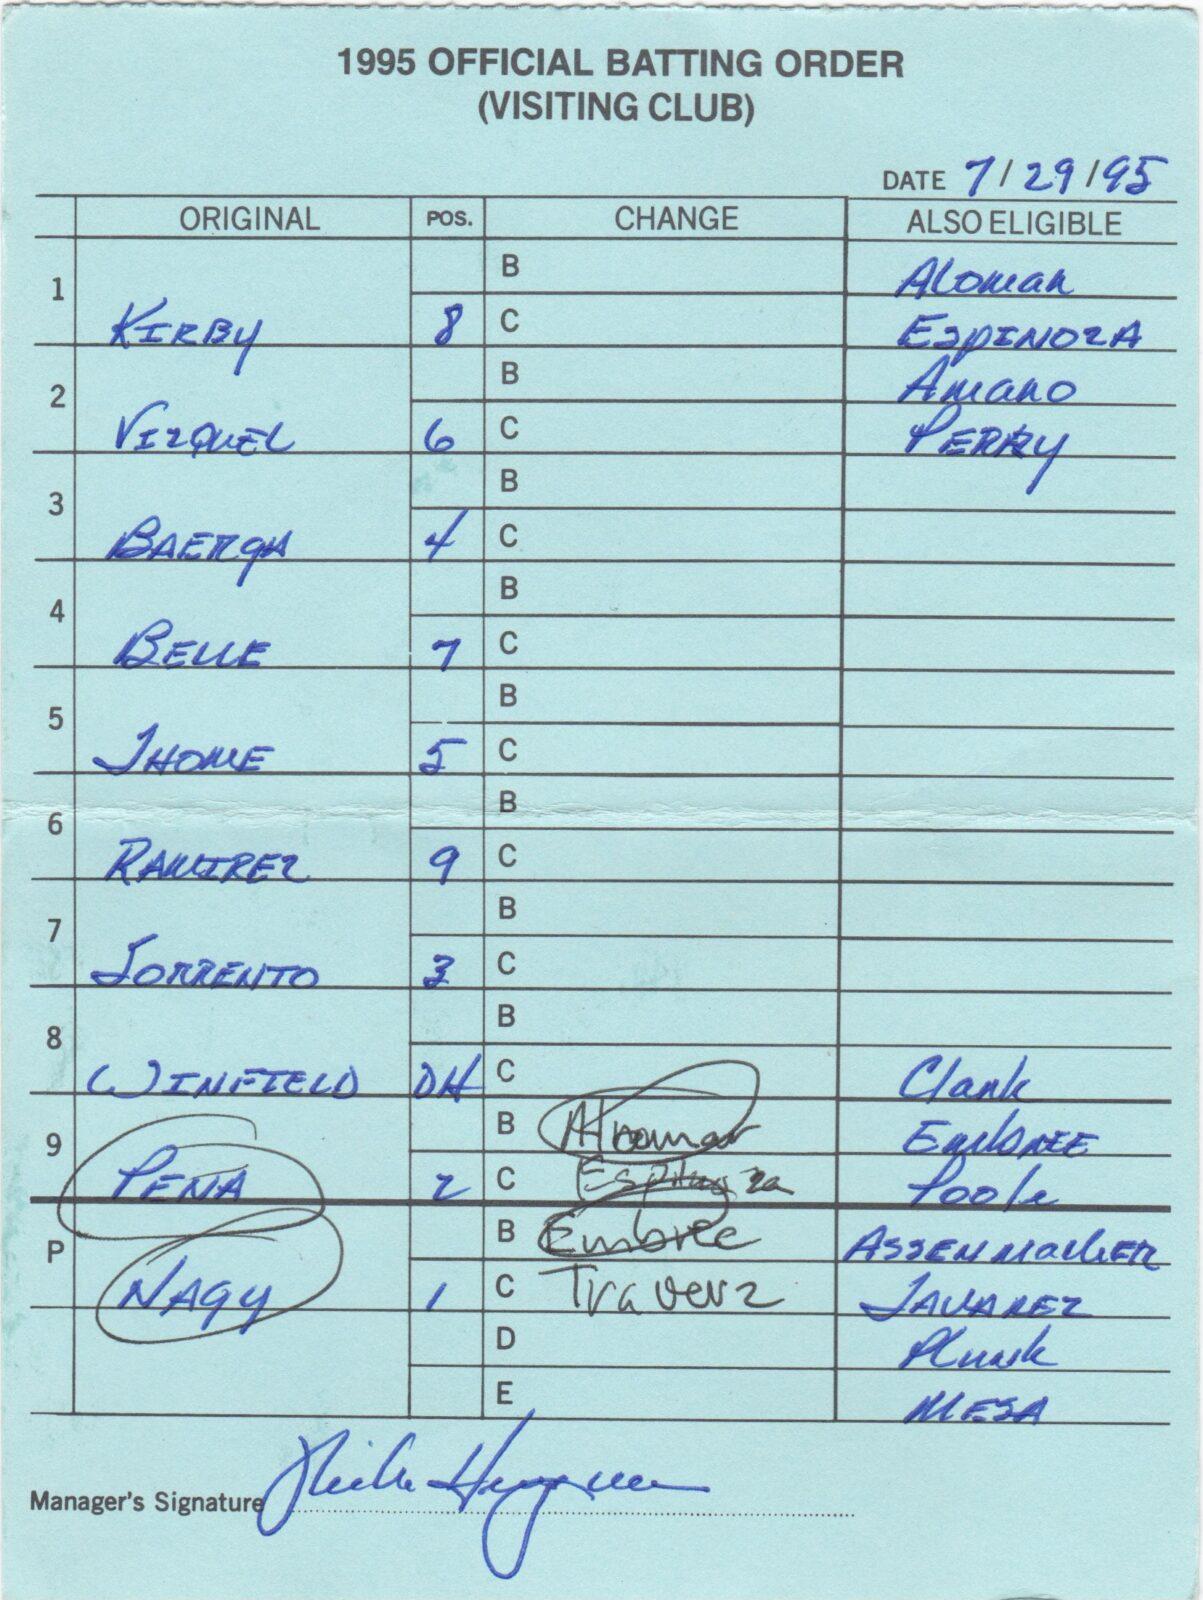 1995 OFFICIAL BATTING ORDER
(VISITING CLUB)
DATE 7/29/95
ORIGINAL POS. CHANGE ALSO ELIGIBLE
1 B Alomar
KIRBY 8 C ESPINOZA
2 B Amaro
VIZQUEL 6 C PERRY
3 B
BAERGA 4 C
4 B
BELLE 7 C
5 B
THOME 5 C
6 B
RAMIREZ 9 C
7 B
SORRENTO 3 C
8 B
WINFIELD DH C Clark
9 B Alomar EMBREE
PENA 2 C Espinoza Poole
P B Embree ASSENMACHER
NAGY 1 C Traverz TAVAREZ
D Plunk
E MESA
Manager's Signature Mike Hargrove